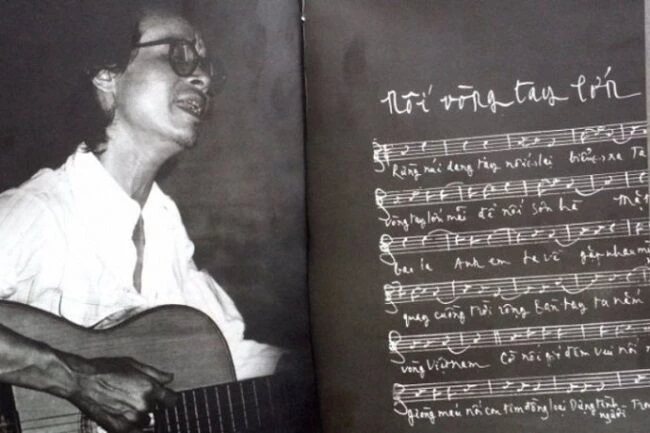 nối vòng tay lớn
Rừng núi dang tay nối lại biển xa Ta
vòng tay lớn mãi để nối sơn hà Mặt
bao la Anh em ta về gặp nhau
quay cuồng trời rộng Bàn tay ta nắm
vòng Việt nam Cờ nối gió đêm vui nối
giòng máu nối con tim đồng loại Dựng tình
người